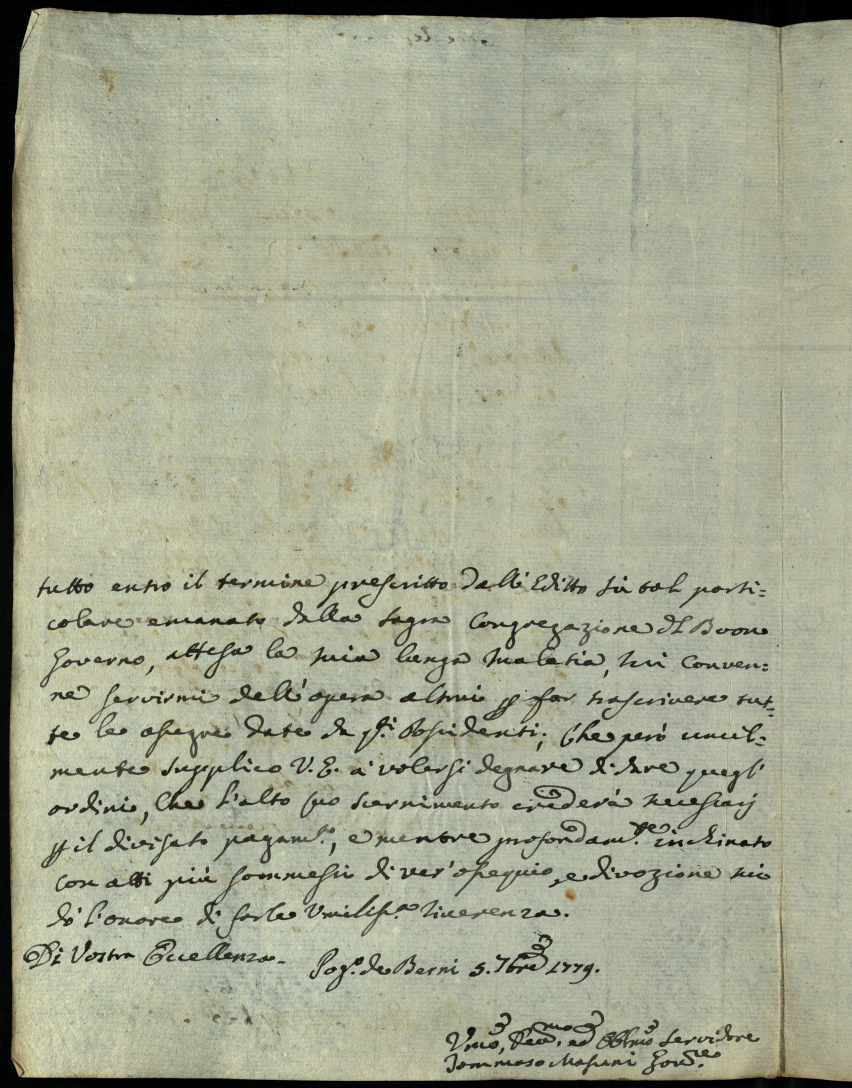 tutto entro il termine prescritto dall'Editto sù tal parti=
colare emanato dalla Sagra Congregazione del Buon
Governo, attesa la mia lunga malatia, mi conven=
ne servirmi dell'opera altrui p far trascrivere tut=
te le assegne date da q.ti Possidenti; Che però umil=
mente supplico V. E. à volersi degnare di dare quegl'
ordini, che l'alto suo scernimento crederà necessarj
p il divisato pagam.to, e mentre profondam.te inchinato
con atti più sommessi di ver'ossequio, e divozione mi
dò l'onore di farle Umiliss.a riverenza.
Di Vostra Eccellenza.
Pog.o de Berni 5. 7bre 1779.
Umo, Devmo, ed Obblmo Servidore
Tommaso Gov.re